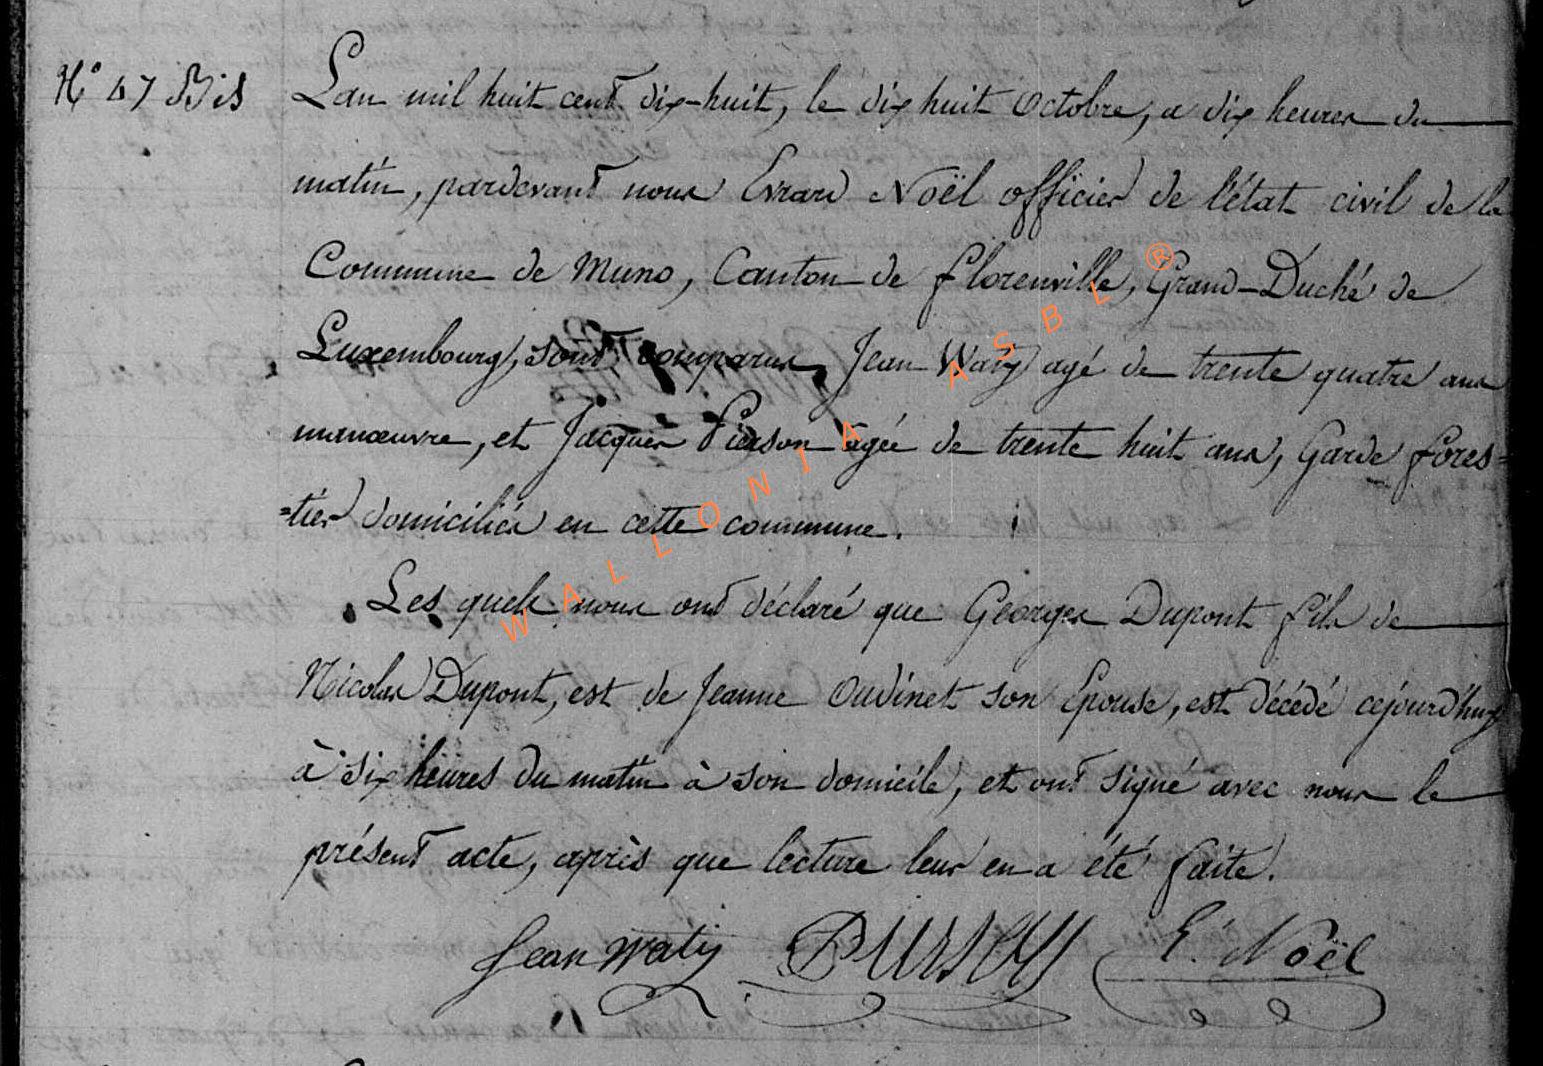 N° 47 Bis
Lan mil huit cent dix-huit, le dix huit Octobre, a dix heures du
matin, pardevant nous Evrard Noël officier de l'état civil de la
Commune de Muno, Canton de florenville, Grand-Duché de
Luxembourg, sont comparus, Jean Waty agé de trente quatre ans
manœuvre, et Jacques Pierson agée de trente huit ans, Garde fores=
=tier domiciliés en cette commune.
Les quels nous ont déclaré que Georges Dupont fils de
Nicolas Dupont, est de Jeanne Oudinet son Epouse, est décédé cejourd'huy
à six heures du matin à son domicile, et ont signé avec nous le
présent acte, après que lecture leur en a été faite.
Jean Waty E. Noël
WALLONIA ASBL ®